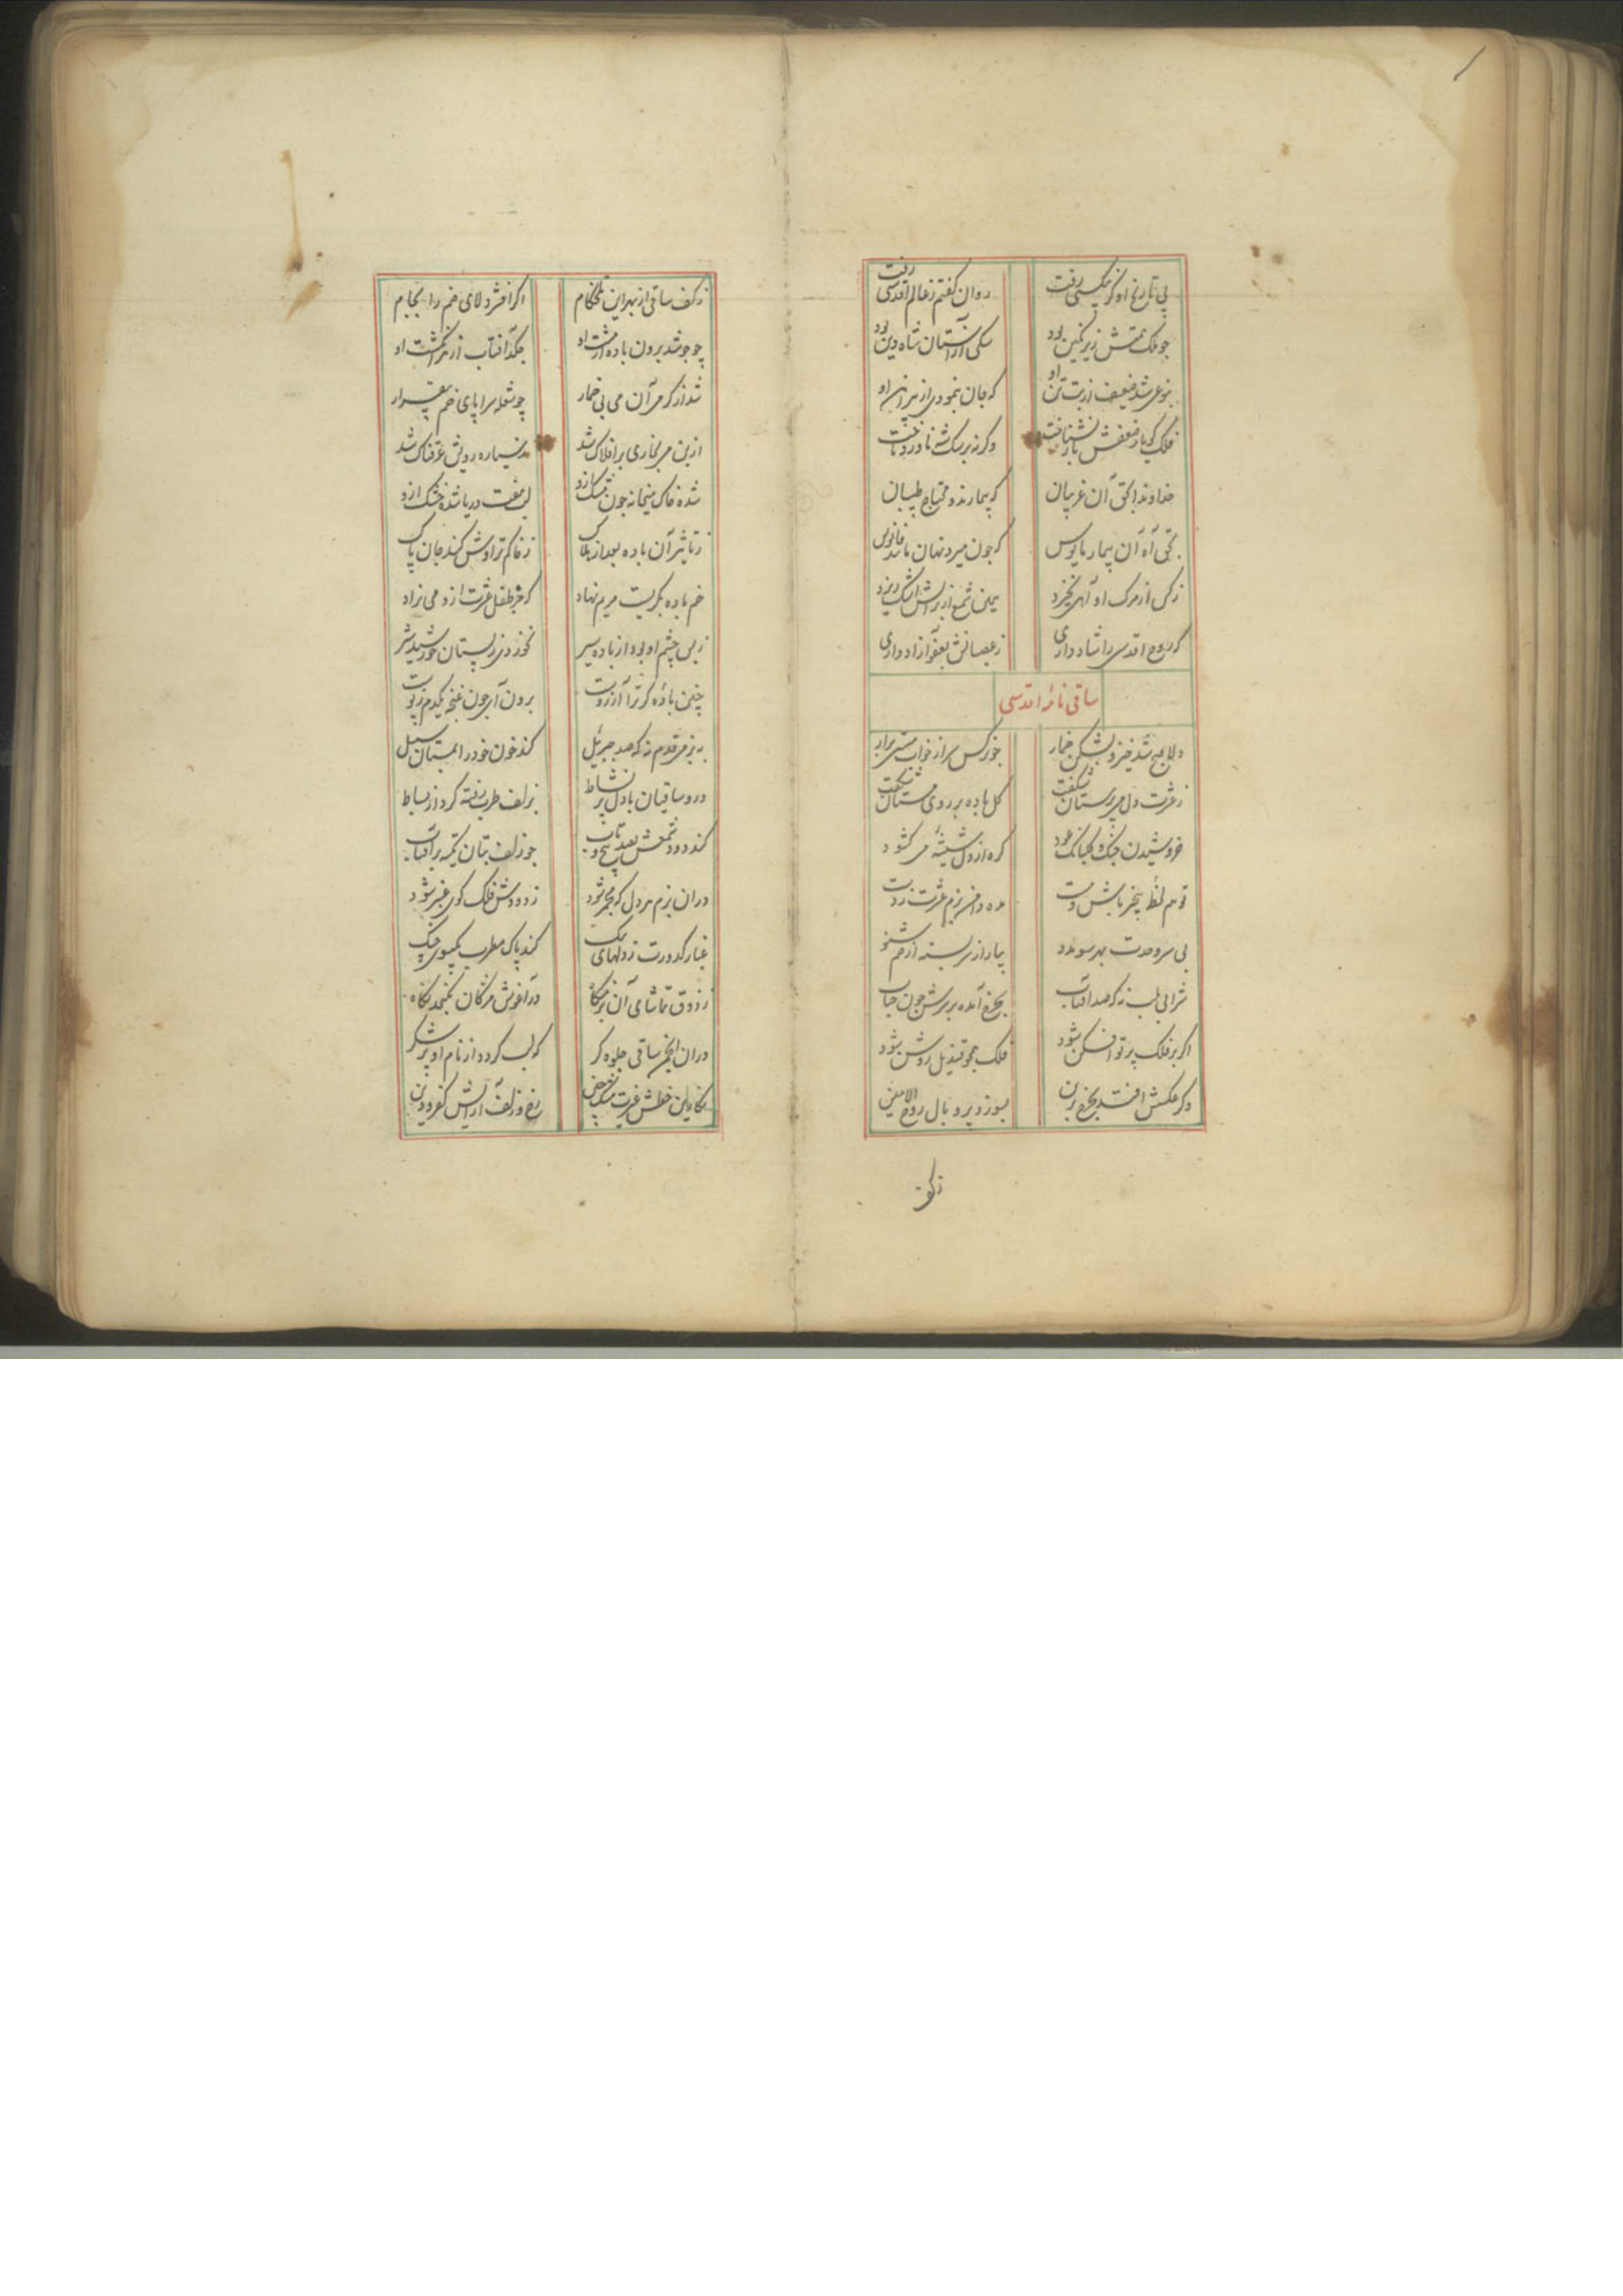 پی تاریخ او کز بیکسی رفت
روان گفتم ز عالم اقدسی رفت
چو ملک همتش زیر نگین بود
سگی از آستان شاه دین بود
بنوعی شد ضعیف از تب تن او
که جان بنمودی از پیراهن او
فلک کو یار ضعفش باز نشناخت
وگرنه بر سگ شه ناورد تاخت
خداوندا بحق آن غریبان
که بیمارند و محتاج طبیبان
بحق آه آن بیمار مأیوس
که چون میرد نهان ماند چو فانوس
ز کس از مرگ او آهی نخیزد
همین شمع از برایش اشک ریزد
که روح اقدسی را شاد داری
ز عصیانش بعفو آزاد داری
ساقی نامهٔ اقدسی
دلا صبح شد خیز و بشکن خمار
چو نرگس سر از خواب مستی برار
ز عشرت دل می پرستان شکفت
گل باده بر روی مستان شکفت
خروشیدن چنگ و گلبانگ عود
گره از دل شیشه می گشود
تو هم لحظهٔ بیخبر باش و مست
بزم عشرت ز دست
بی سر وحدت بهر سو مدو
بیا راز سربسته از خم شنو
شرابی طلب نه که صد آفتاب
بچرخ آمده بر سرش چون حباب
اگر بر فلک پرتو افکن شود
فلک همچو قندیل روشن شود
وگر عکسش افتد بچرخ برین
بسوزد پر و بال روح الامین
ز کف
ز کف ساقی از بهر این تلخکام
اگر افشرد لای خم را بجام
چو جوشد برون باده از مشت او
چکد آفتاب از سر انگشت او
شد از گرمی آن می بی خمار
چو شعله سراپای خم بیقرار
ازین می بخاری بر افلاک شد
رویش عرقناک شد
شده خاک میخانه چون مشک ازو
لب هفت دریا شده خشک ازو
ز تاثیر آن باده بعد از هلاک
ز خاکم تراوش کند جان پاک
خم باده بکریست مریم نهاد
که جز طفل عشرت ازو می نزاد
ز بس چشم او بود از باده سیر
نخوردی ز پستان خورشید شیر
چنین بادهٔ گر ترا آرزوست
برون آی چون غنچه یکدم ز پوست
به بزمی قدم نه که صد جبرئیل
کند خون خود را بمستان سبیل
درو ساقیان با دل پر نشاط
بزلف طرب رفته گرد از بساط
کند دود شمعش بصد پیچ و تاب
چو زلف بتان تکیه بر آفتاب
دران بزم هر دل که مجمر شود
ز دودش فلک گوی عنبر شود
غبار کدورت ز دلهای تنگ
کند پاک مطرب بگیسوی چنگ
ز ذوق تماشای آن بزمگاه
در آغوش مژگان نگنجد نگاه
دران انجمن ساقی جلوه گر
که لب گردد از نام او پر شکر
نگارین خطش غیرت مشک چین
رخ و زلفش آرایش کفر و دین